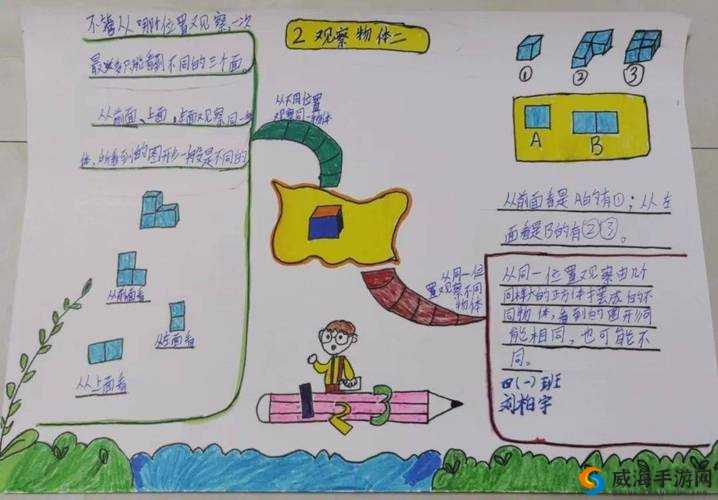 2 观察物体二
不管从哪个位置观察,一次
最多只能看到不同的三个面。
从前面、上面、左面观察同一物
体,所看到的图形一般是不同的
从前面看
从左面看
从上面看
从不同位置
观察同一物体
从同一位
置观察不同
物体
① ② ③
A B
从前面看是A的有①;从左
面看是B的有②③。
从同一位置观察由几个
同样大的正方体摆成的不
同物体,看到的图形可
能相同,也可能不
同。
四(一)班
刘柏宇
1 2 3
威海手游网